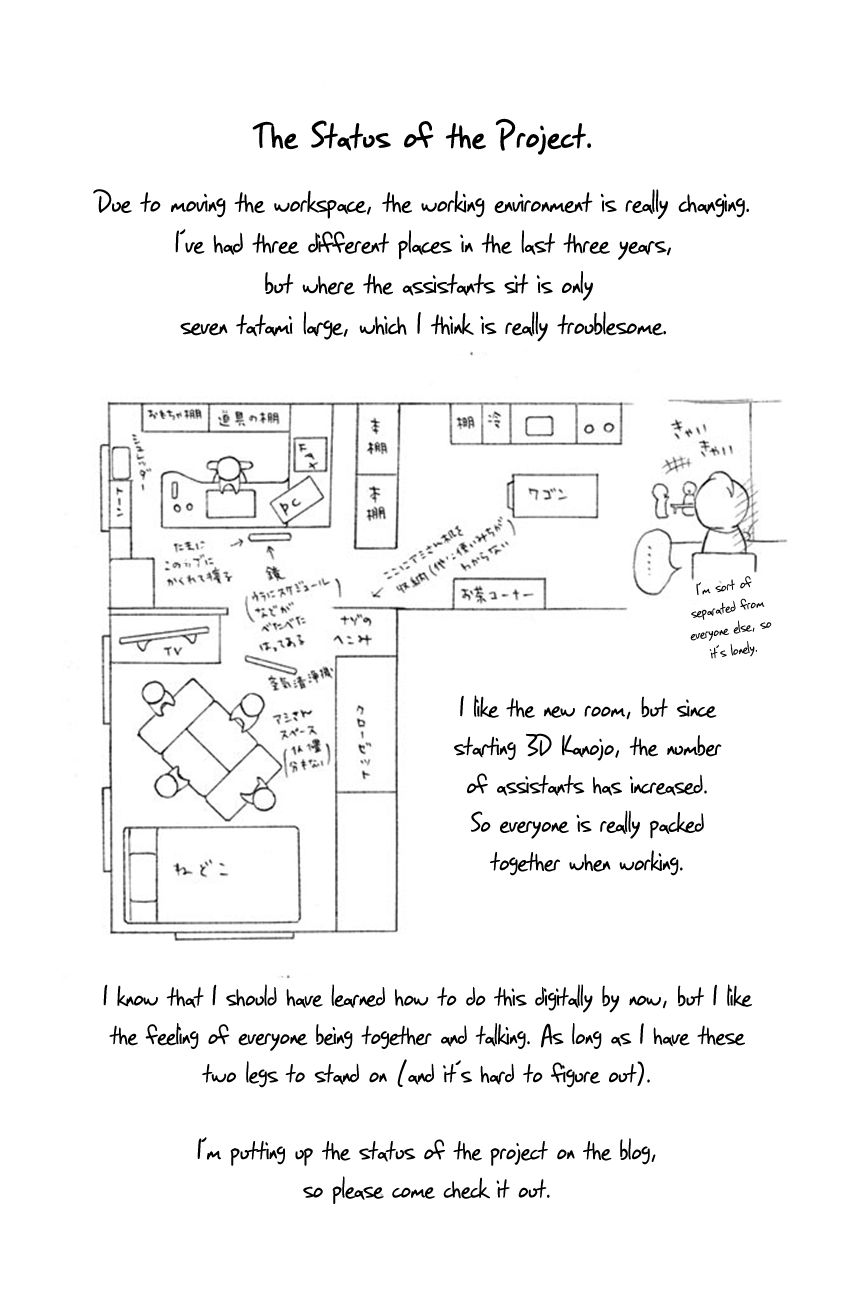 The Status of the Project.
Due to moving the workspace, the working environment is really changing.
I've had three different places in the last three years,
but where the assistants sit is only
seven tatami large, which I think is really troublesome.
おもちゃ棚
道具の棚
FAX
PC
本棚
本棚
棚
冷
ワゴン
お茶コーナー
きゃい
きゃい
......
I'm sort of
separated from
everyone else, so
it's lonely.
たまに
このラップに
かくれて寝る
鏡
(うらにスケジュール
などが
べたべた
はってある)
ここにアシさん机を
収納(他に使いみちが
わからない)
ナゾの
へこみ
TV
空気清浄機
アシさん
スペース
クローゼット
ねどこ
I like the new room, but since
starting 3D Kanojo, the number
of assistants has increased.
So everyone is really packed
together when working.
I know that I should have learned how to do this digitally by now, but I like
the feeling of everyone being together and talking. As long as I have these
two legs to stand on (and it's hard to figure out).
I'm putting up the status of the project on the blog,
so please come check it out.